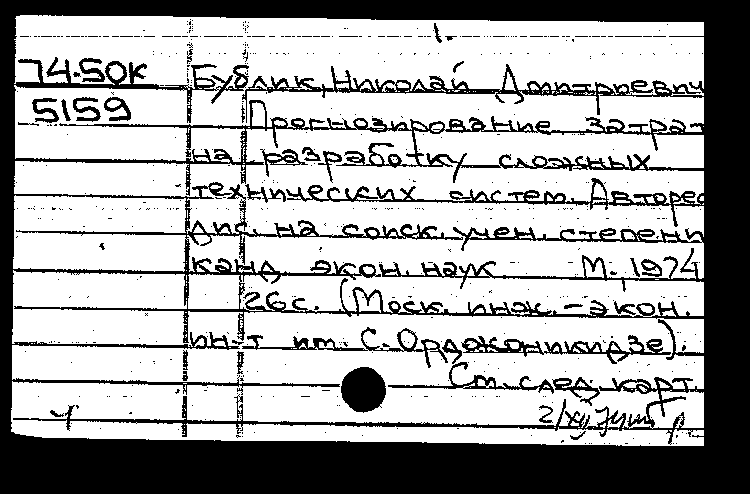 1.
74.50к Бублик, Николай Дмитриевич
5159 Прогнозирование затрат
на разработку сложных
технических систем. Авторес
дис. на соиск. учен. степени
канд. экон. наук. М., 1974
26с. (Моск. инж.-экон.
ин-т им. С. Орджоникидзе).
См. след. карт